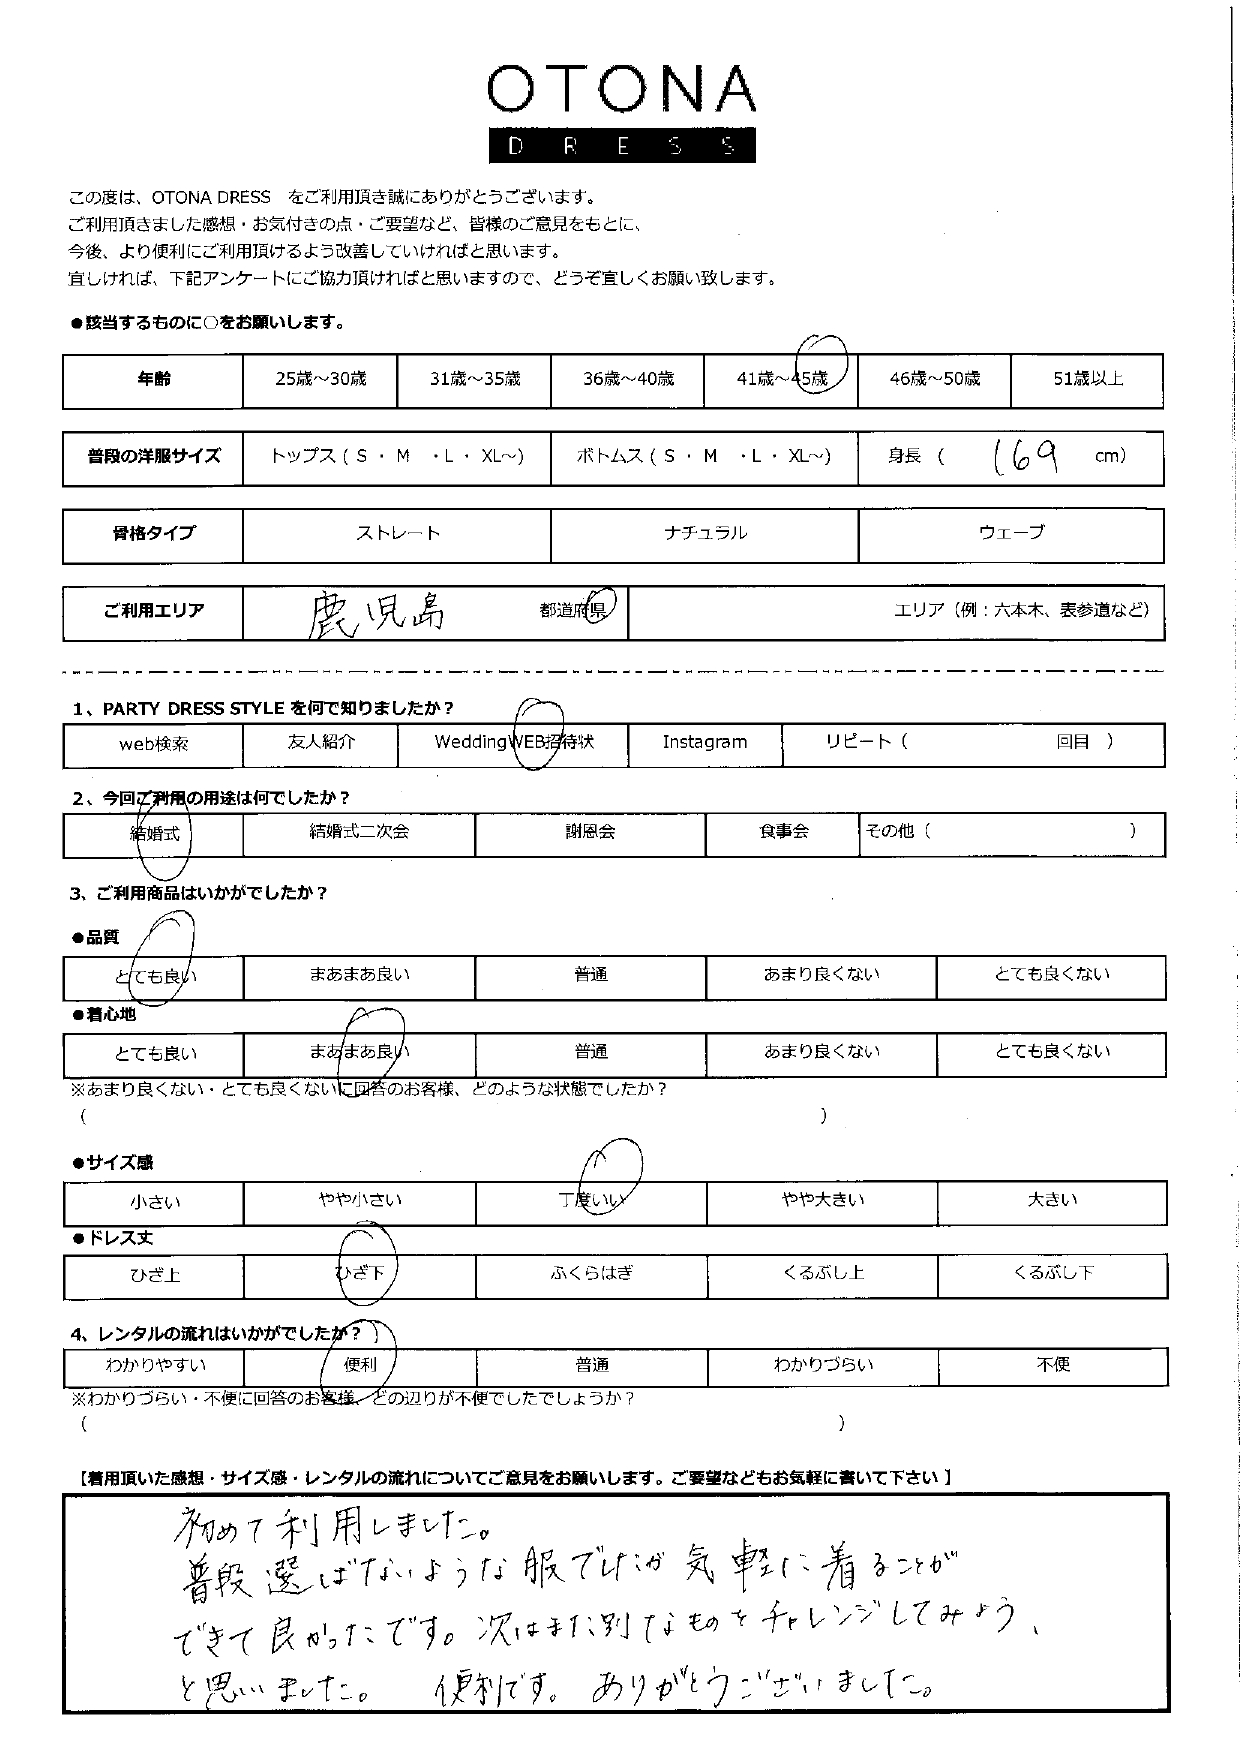 OTONA
DRESS
この度は、OTONA DRESS　をご利用頂き誠にありがとうございます。
ご利用頂きました感想・お気付きの点・ご要望など、皆様のご意見をもとに、
今後、より便利にご利用頂けるよう改善していければと思います。
宜しければ、下記アンケートにご協力頂ければと思いますので、どうぞ宜しくお願い致します。
●該当するものに○をお願いします。
年齢 25歳～30歳 31歳～35歳 36歳～40歳 41歳～45歳 46歳～50歳 51歳以上
普段の洋服サイズ トップス ( S ・ M ・L ・ XL～) ボトムス ( S ・ M ・L ・ XL～) 身長 ( 169 cm)
骨格タイプ ストレート ナチュラル ウェーブ
ご利用エリア 鹿児島 都道府県 エリア（例：六本木、表参道など）
1、PARTY DRESS STYLE を何で知りましたか？
web検索 友人紹介 WeddingWEB招待状 Instagram リピート（ 回目 ）
2、今回ご利用の用途は何でしたか？
結婚式 結婚式二次会 謝恩会 食事会 その他（ ）
3、ご利用商品はいかがでしたか？
●品質
とても良い まあまあ良い 普通 あまり良くない とても良くない
●着心地
とても良い まあまあ良い 普通 あまり良くない とても良くない
※あまり良くない・とても良くないに回答のお客様、どのような状態でしたか？
( )
●サイズ感
小さい やや小さい 丁度いい やや大きい 大きい
●ドレス丈
ひざ上 ひざ下 ふくらはぎ くるぶし上 くるぶし下
4、レンタルの流れはいかがでしたか？
わかりやすい 便利 普通 わかりづらい 不便
※わかりづらい・不便に回答のお客様、どの辺りが不便でしたでしょうか？
( )
【着用頂いた感想・サイズ感・レンタルの流れについてご意見をお願いします。ご要望などもお気軽に書いて下さい】
初めて利用しました。
普段選ばないような服でしたが気軽に着ることが
できて良かったです。次はまた別なものをチャレンジしてみよう、
と思いました。 便利です。ありがとうございました。